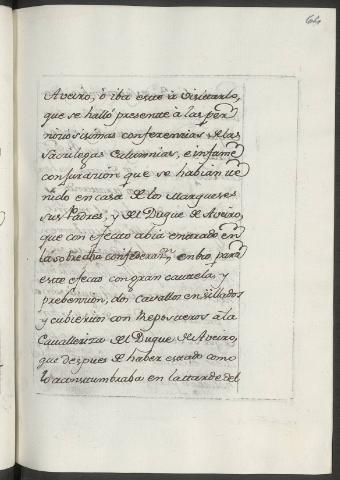 Aveiro, ò iba este à visitarlo,
que se halló presente à las per
niciosisimas conferencias de las
sacrilegas calumnias, e infame
conjuracion que se habian te
nido en casa de los Marqueses
sus Padres, y del Duque de Aveiro,
que con efecto abia entrado en
la sobredha confederazn, embio para
este efecto con gran cautela, y
prebencion, dos cavallos ensillados
y cubiertos con Reposteros à la
Cavalleriza del Duque de Aveiro,
que despues de haber estado como
lo acostumbraba en la tarde del